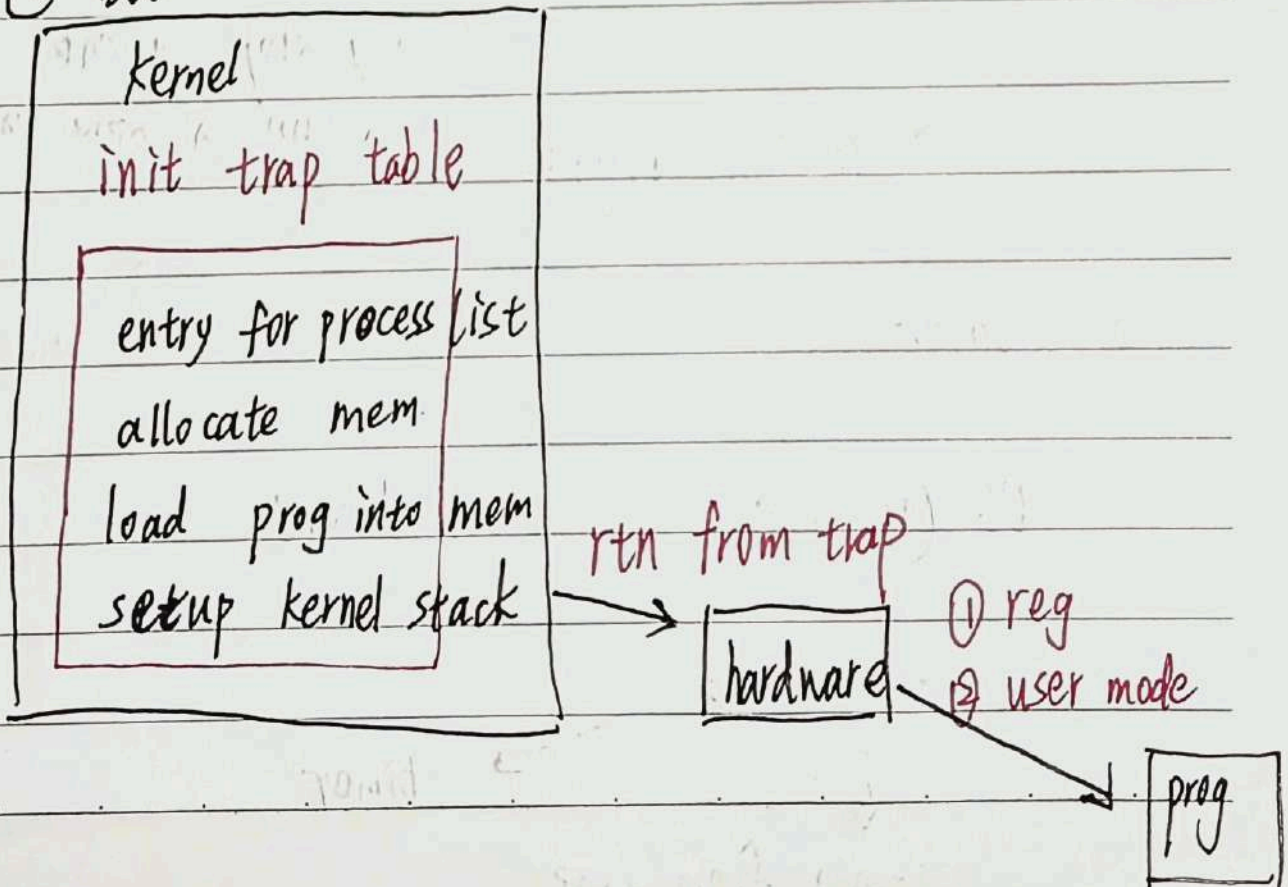 kernel
init trap table
entry for process list
allocate mem
load prog into mem
setup kernel stack
rtn from trap
hardware
① reg
② user mode
prog